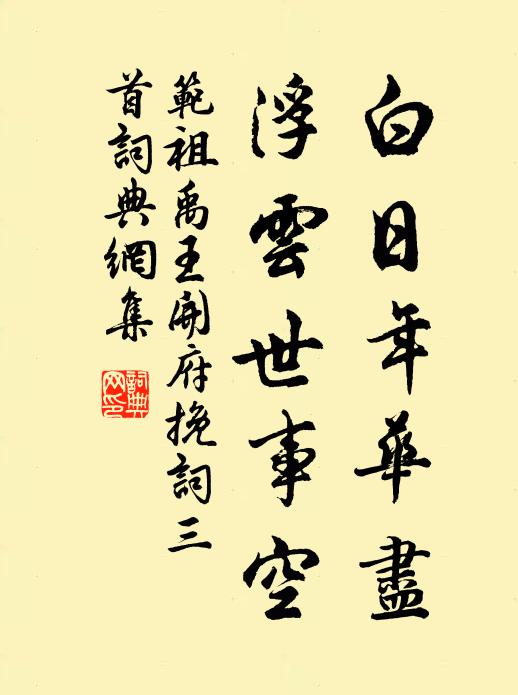 白日年華盡
浮雲世事空
範祖禹王開府挽詞三
首詞典網集
詞典
网印